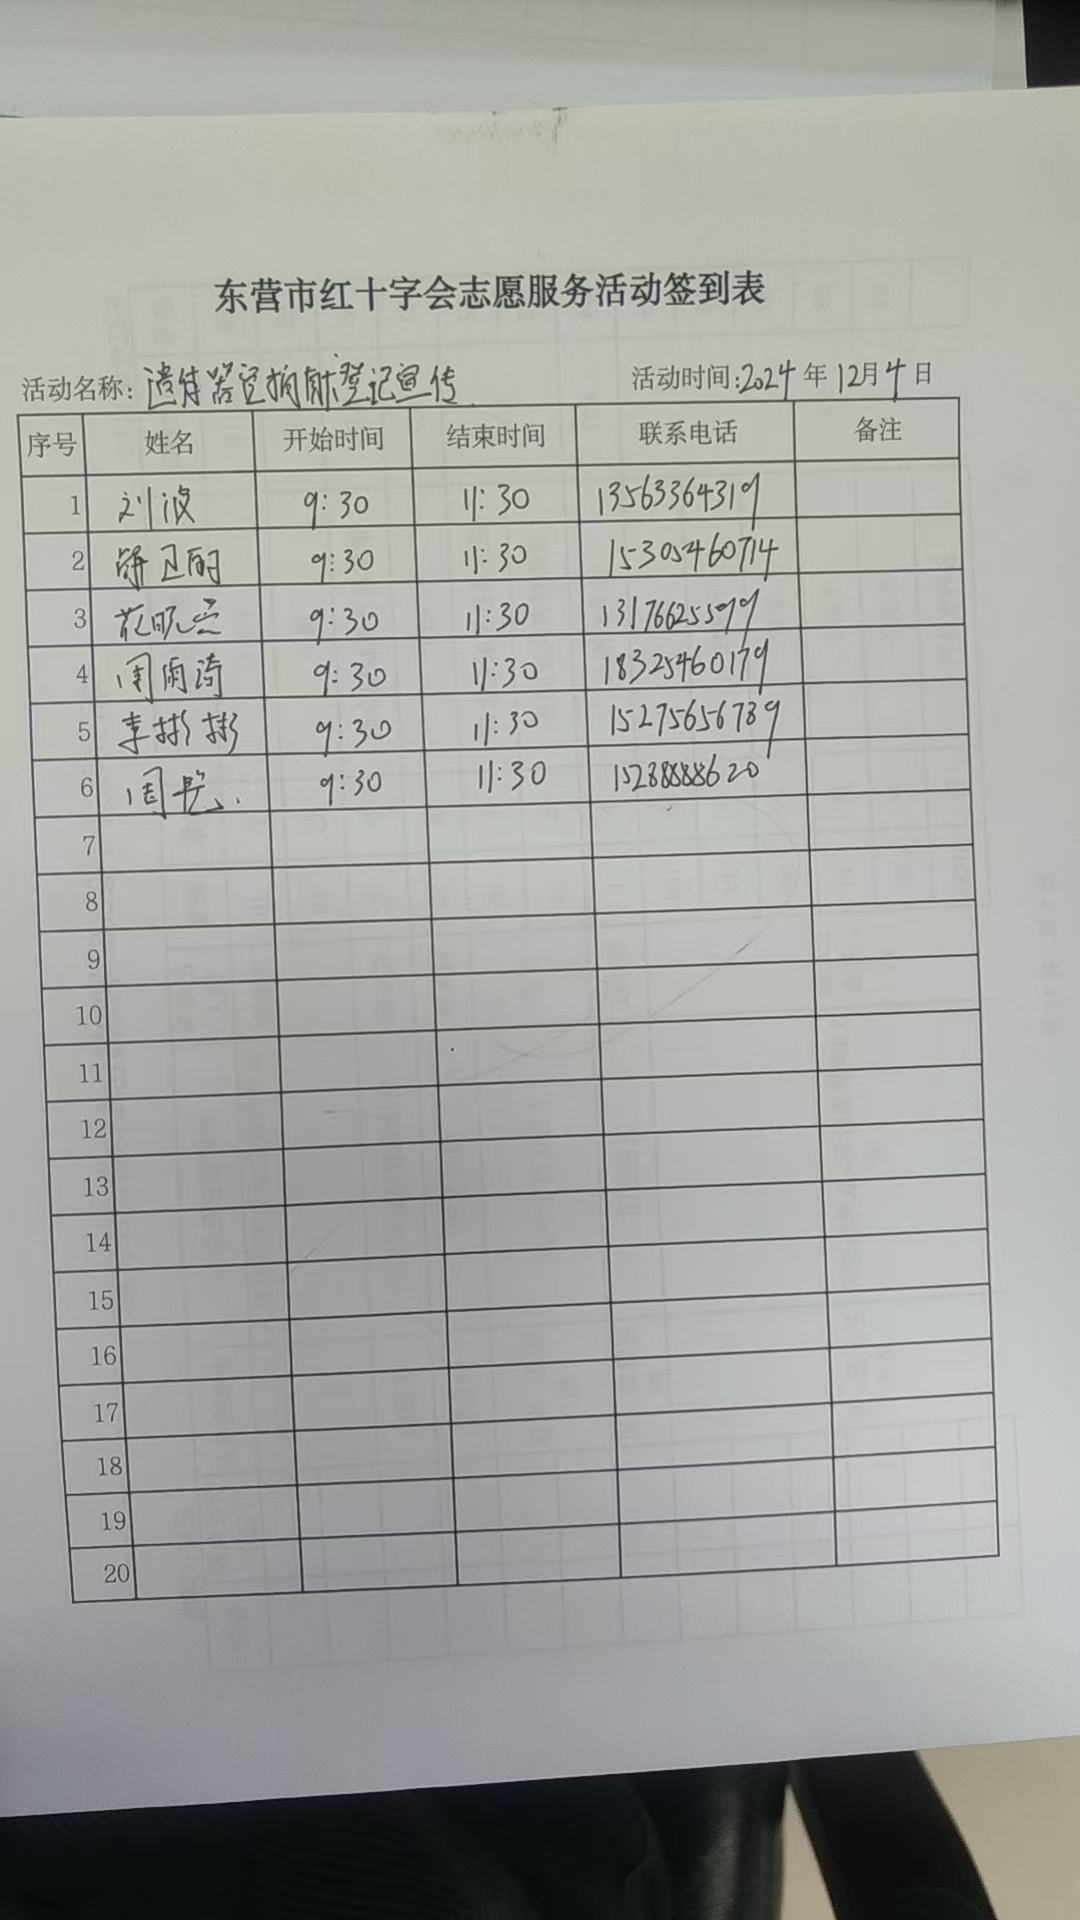 东营市红十字会志愿服务活动签到表
活动名称:遗体器官捐献登记宣传 活动时间:2024年12月4日
序号 姓名 开始时间 结束时间 联系电话 备注
1 刘波 9:30 11:30 13563364319
2 薛卫丽 9:30 11:30 15305460714
3 9:30 11:30 13176625599
4 周雨涛 9:30 11:30 18325460179
5 李彬彬 9:30 11:30 15275656789
6 周 9:30 11:30 15288888620
7
8
9
10
11
12
13
14
15
16
17
18
19
20